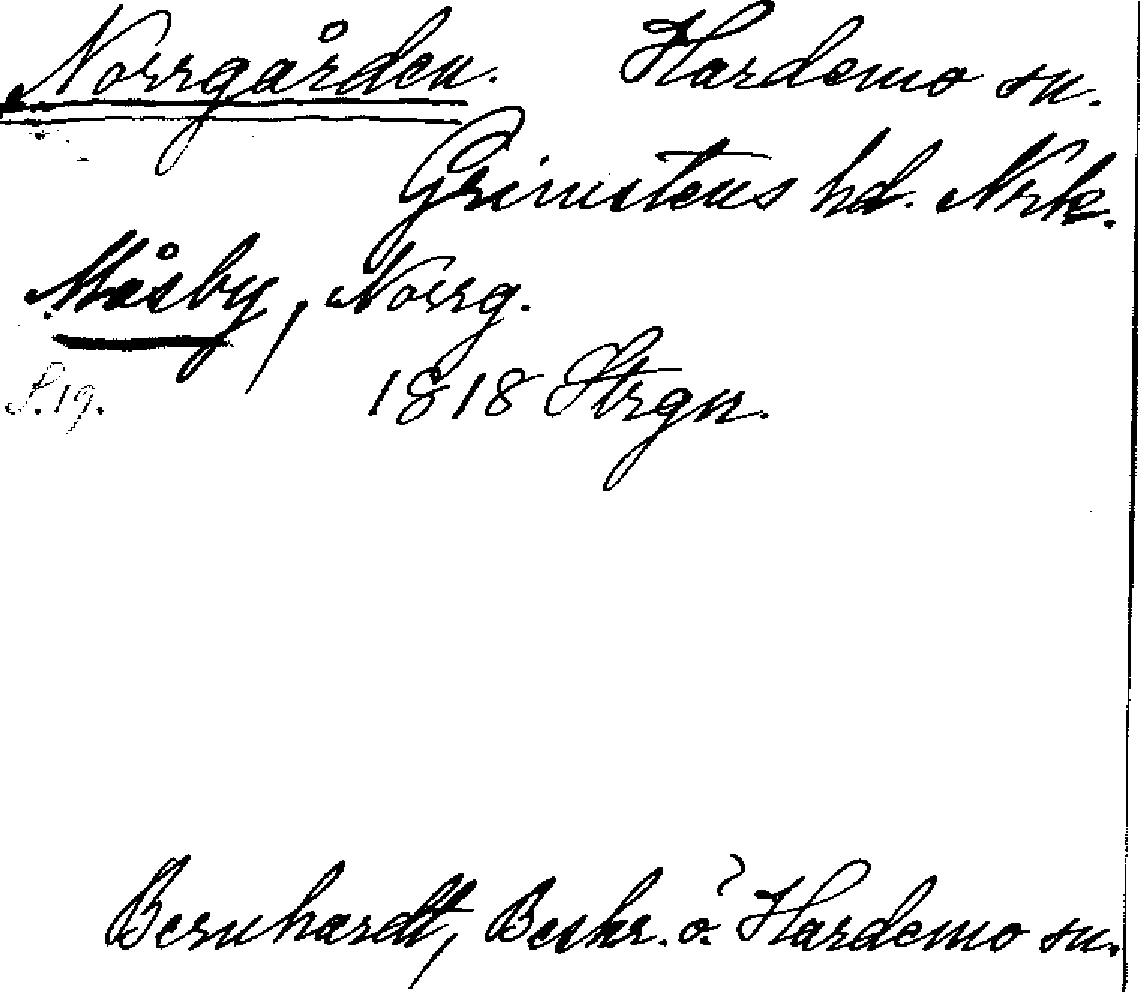 Norrgården. Hardemo sn.
Grimstens hd. Nrk.
Måsby, Norrg.
S.19. 1818 Strgn.
Bernhardt, Beskr. ö. Hardemo sn.